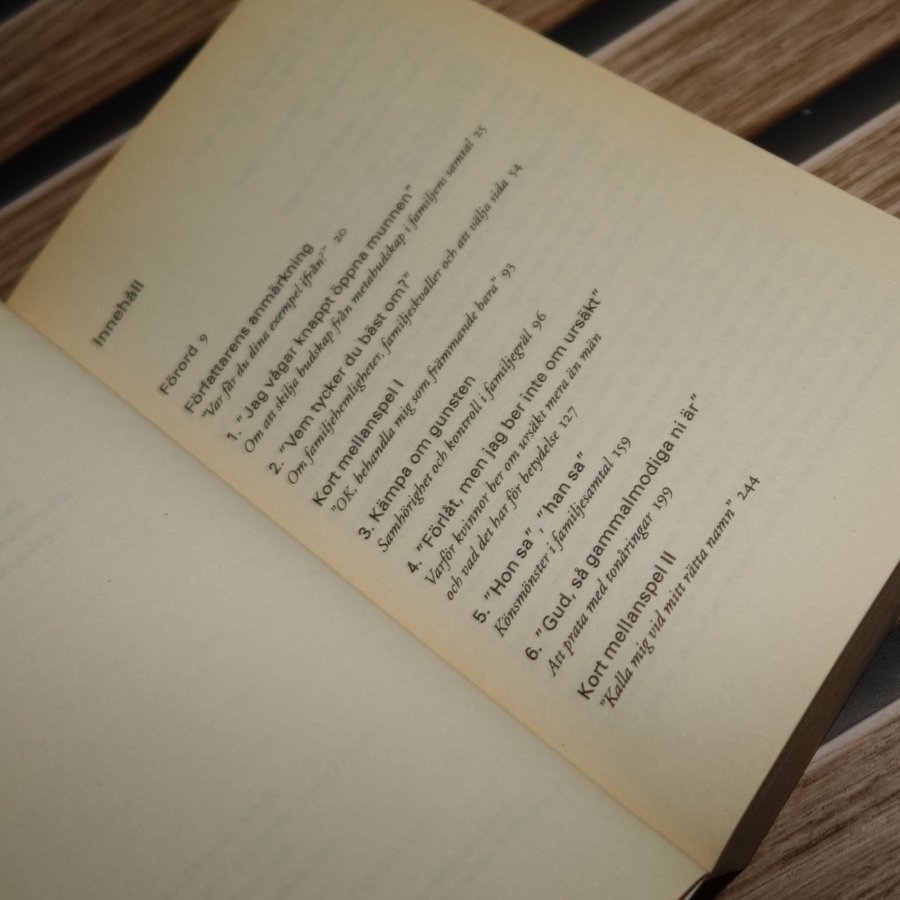 Innehåll
Förord 9
Författarens anmärkning
"Var får du dina exempel ifrån?" 20
1. "Jag vågar knappt öppna munnen"
Om att skilja budskap från metabudskap i familjens samtal 25
2. "Vem tycker du bäst om?"
Om familjehemligheter, familjeskvaller och att välja sida 54
Kort mellanspel I
"OK, behandla mig som främmande bara" 93
3. Kämpa om gunsten
Samhörighet och kontroll i familjegräl 96
4. "Förlåt, men jag ber inte om ursäkt"
Varför kvinnor ber om ursäkt mera än män
och vad det har för betydelse 127
5. "Hon sa", "han sa"
Könsmönster i familjesamtal 159
6. "Gud, så gammalmodiga ni är"
Att prata med tonåringar 199
Kort mellanspel II
"Kalla mig vid mitt rätta namn" 244